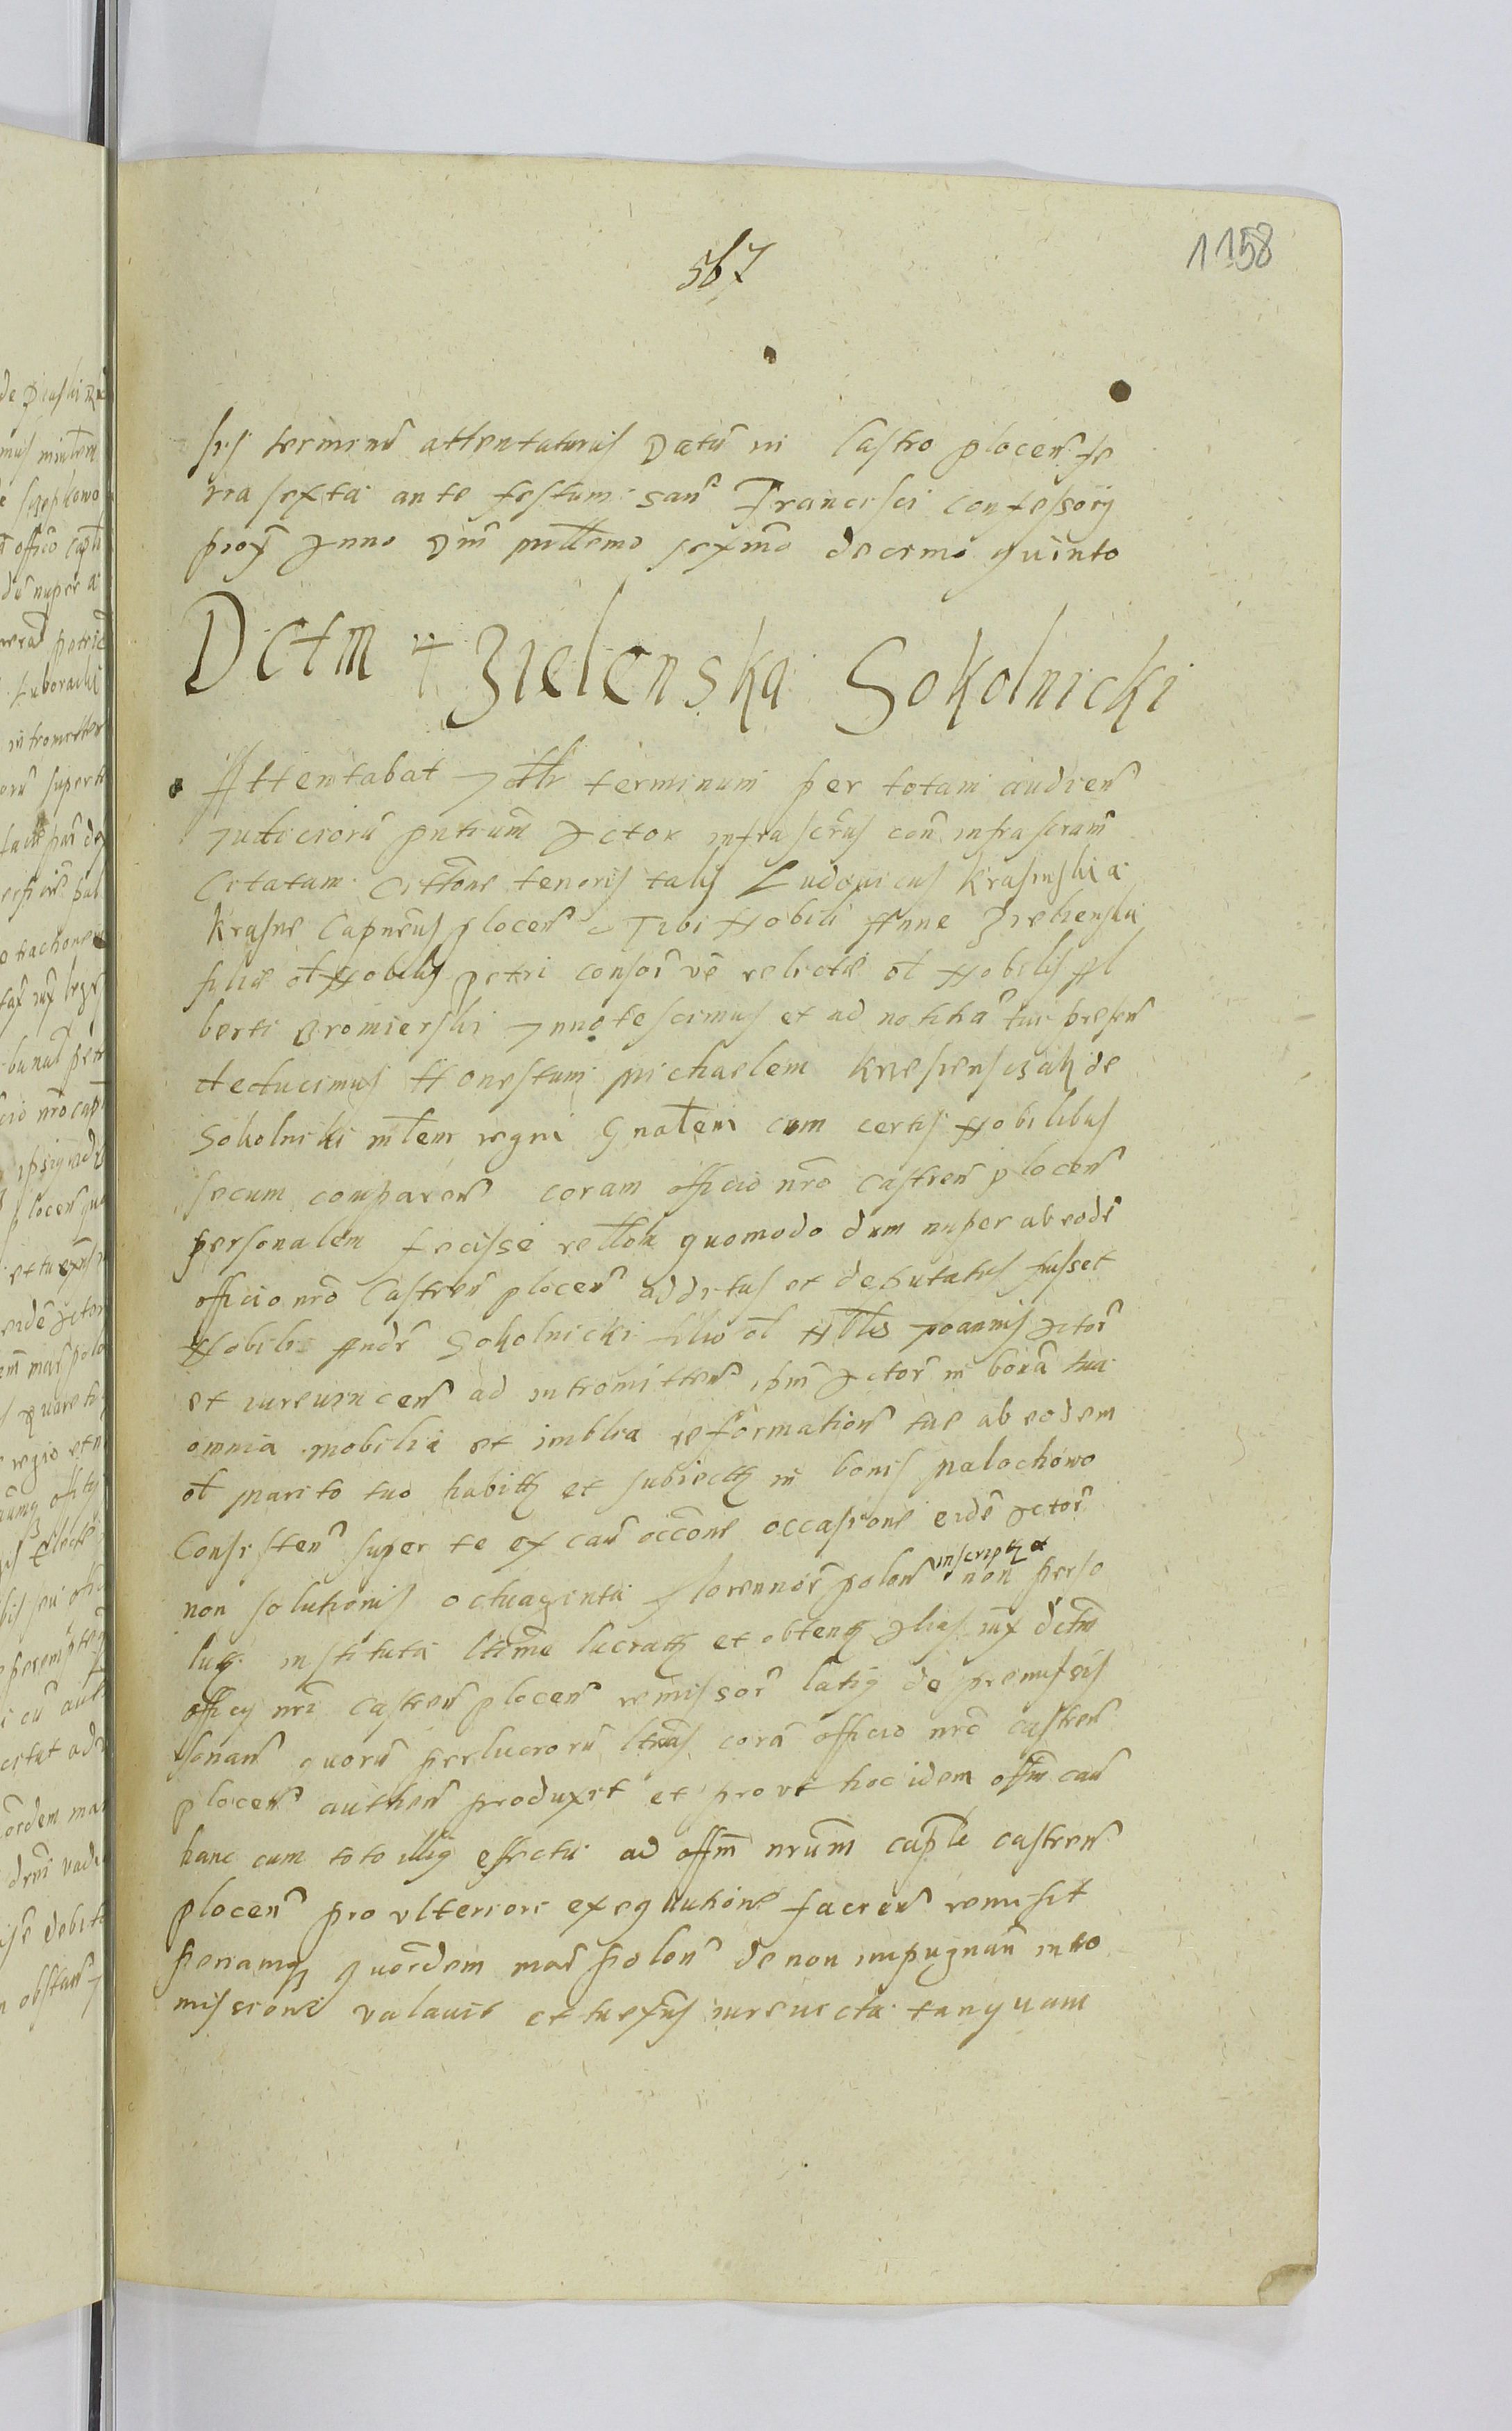 1158
567
sis terminu attentaturus Datu in Castro plocen fe
ria sexta ante festum san Francisci confessoris
prox Anno Dni millemo sexmo decimo quinto
Dctm + Zielenska Sokolnicki
Attentabat terminum per totam audien
Judiciorū pntium Actor infrascrus con infrascram
Citatam Citttone tenoris talis Ludovicus Krasinski a
Krasne Capneus plocen Tibi Nobili Anne Zielienska
filiæ ol Nobilis petri consor vē relictæ ol Nobilis Al
berti Bromierski Innotescimus et ad notitiā tuā presen
deducimus Honestum Michaelem de
Sokolniki mlem regni Gnalem cum certis Nobilibus
secum comparen coram officio nro castren plocen
personalem fecisse relton quomodo dum nuper ab eodē
officio nro Castren plocen additus et deputatus fusset
Nobili Andr Sokolnicki filio ol Nblis Joannis Actor
et iurevincen ad intromitten ipm Actor in bona tua
omnia mobilia et imblia reformation tue ab eodem
ol Marito tuo habitt et subiectt in bonis Malochowo
Consisten super te ex cau occasione eidē Actor
non solutionis octuaginta florennor polon inscript et non perso
lutt instituta lucratt et obtent Alias iux dctm
officij nri castren plocen remissor latig de premissis
sonan quorū perlucrorū ltras corā officio nro castren
plocen authen produxit et prout hoc idem offm cau
hanc cum toto illig effectu ad offm nrum caple castren
plocen pro ulteriori exequutione facien remisit
penamq quordem mar polon de non impugnan intro
missione valavit et tu exnus iurevicta tanquam